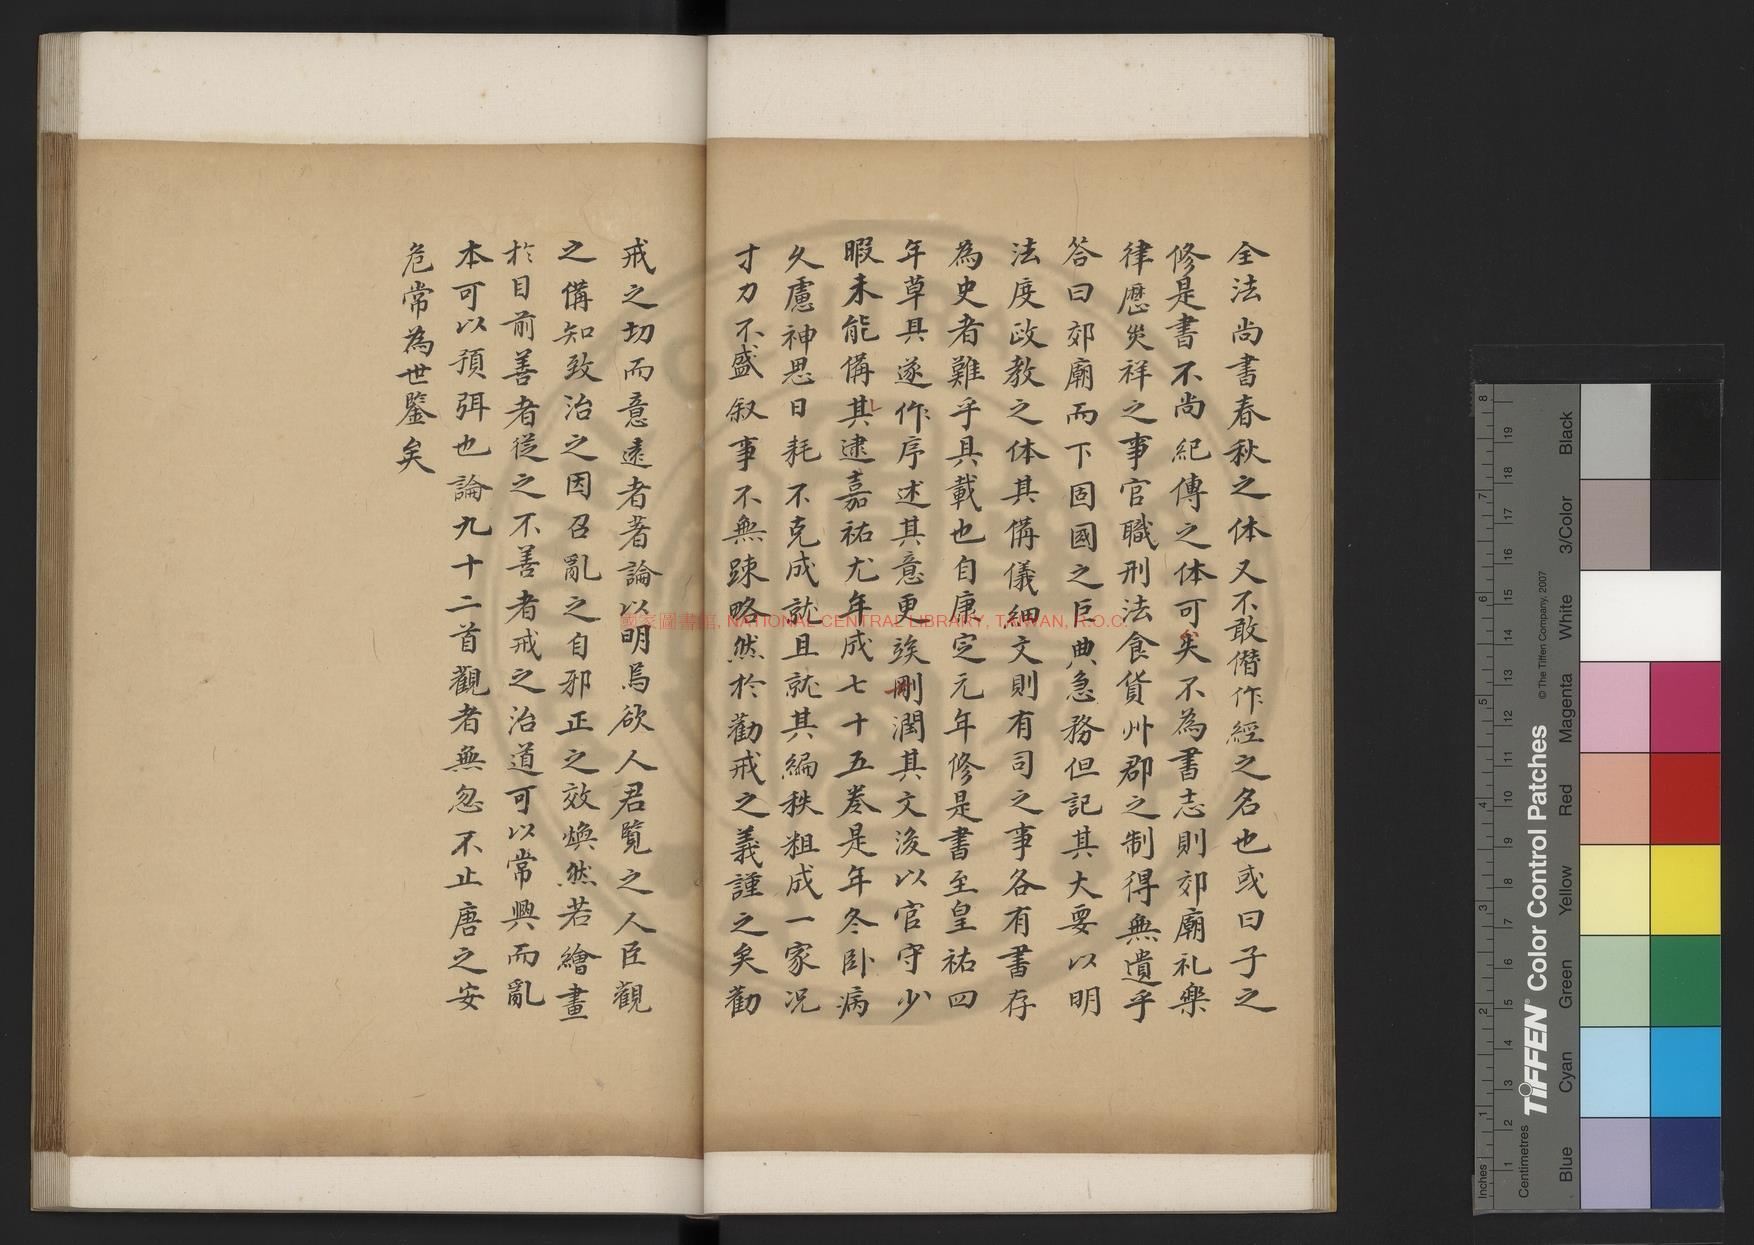 全法尚書春秋之体又不敢僣作經之名也或曰子之
修是書不尚紀傳之体可矣不為書志則郊廟礼樂
律歷災祥之事官職刑法食貨州郡之制得無遺乎
答曰郊廟而下固國之巨典急務但記其大要以明
法度政教之体其俻儀細文則有司之事各有書存
為史者難乎具載也自康定元年修是書至皇祐四
年草具遂作序述其意更竢刪潤其文後以官守少
暇未能俻其逮嘉祐尤年成七十五卷是年冬卧病
久慮神思日耗不克成就且就其編秩粗成一家况
才力不盛叙事不無踈略然於勸戒之義謹之矣勸
戒之切而意遠者著論以明焉欲人君覽之人臣觀
之俻知致治之因召亂之自邪正之效煥然若繪畫
於目前善者從之不善者戒之治道可以常興而亂
本可以預弭也論九十二首觀者無忽不止唐之安
危常為世鑒矣
國家圖書館, NATIONAL CENTRAL LIBRARY, TAIWAN, R.O.C.
Inches 1 2 3 4 5 6 7 8
Centimetres 1 2 3 4 5 6 7 8 9 10 11 12 13 14 15 16 17 18 19
TIFFEN® Color Control Patches
© The Tiffen Company, 2007
Blue Cyan Green Yellow Red Magenta White 3/Color Black